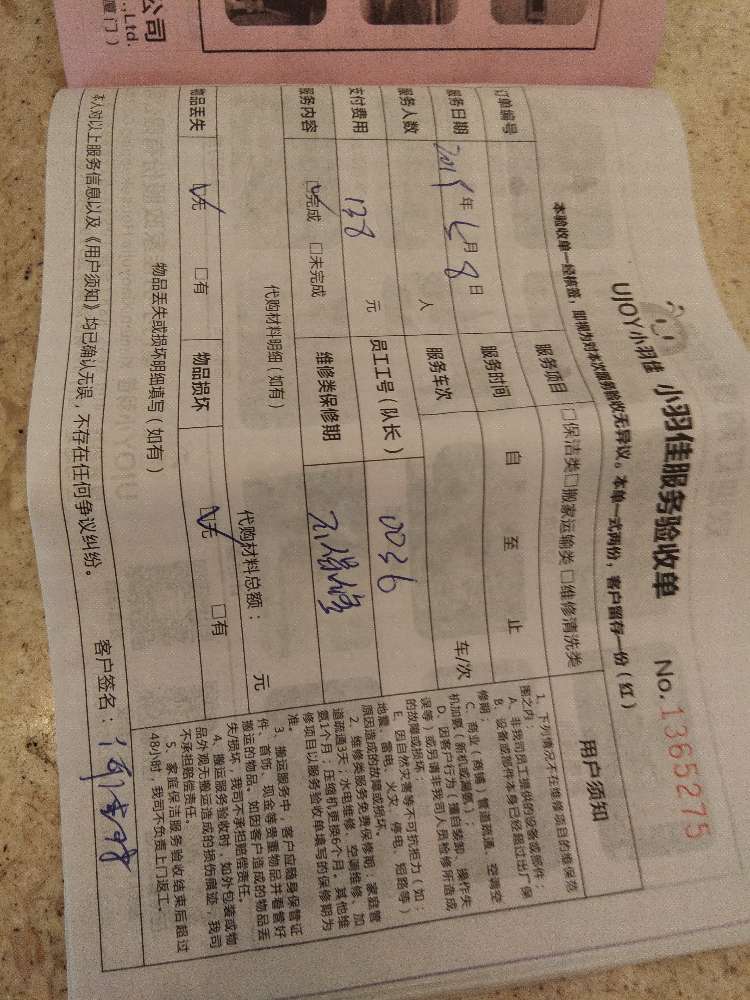 公司
., Ltd.
厦门）
UJOY小羽佳 小羽佳服务验收单 No.1365275
本验收单一经核签，即视为对本次服务验收无异议。本单一式两份，客户留存一份（红）
订单编号 服务项目 □保洁类□搬家运输类□维修清洗类
服务日期 2019年5月8日 服务时间 自 至 止
服务人数 人 服务车次 车/次
支付费用 138 元 员工工号（队长） 0036
服务内容 ☑完成 □未完成 维修类保修期 不保修
代购材料明细（如有） 代购材料总额： 元
物品丢失 ☑无 □有 物品损坏 ☑无 □有
物品丢失或损坏明细填写（如有）
本人对以上服务信息以及《用户须知》均已确认无误，不存在任何争议纠纷。 客户签名：
用户须知
1、下列情况不在维修项目的维保范
围之内：
A、非我司员工提供的设备或部件；
B、设备或部件本身已经超过出厂保
修期；
C、商业（商铺）管道疏通、空调空
机加氨（新机或漏氨）；
D、因客户行为（擅自装卸、操作失
误等）或另请非我司人员检修所造成
的故障或损坏；
E、因自然灾害等不可抗拒力（如：
地震、雷电、火灾、停电、短路等）
原因造成的故障或损坏。
2、维修类服务免费保修期：家庭管
道疏通3天；水电维修、空调维修、加
氨1个月；压缩机更换6个月。其他维
修项目以服务验收单填写的保修期为
准。
3、搬运服务中，客户应随身保管证
件、首饰、现金等贵重物品并看管好
搬运的物品。如因客户造成的物品丢
失/损坏，我司不承担赔偿责任。
4、搬运服务验收时，如外包装或物
品外观无搬运造成的损伤痕迹，我司
不承担赔偿责任。
5、家庭保洁服务验收结束后超过
48小时，我司不负责上门返工。